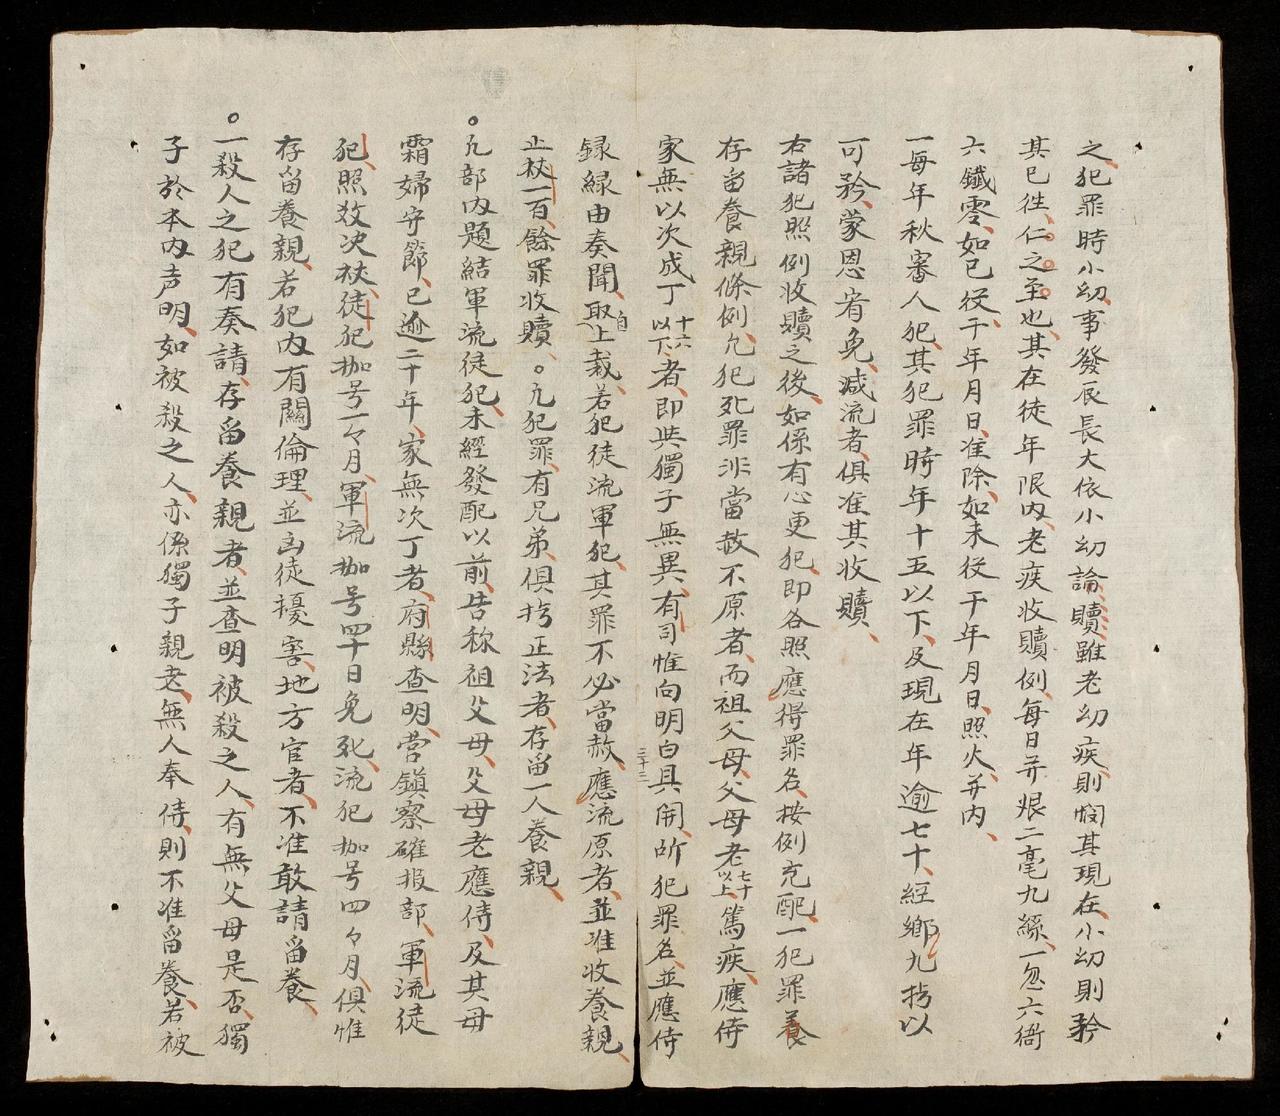 之犯罪時小幼事發辰長大依小幼論贖雖老幼疾則憫其現在小幼則矜
其已徃仁之至也其在徒年限内老疾收贖例每日并艰二毫九絲一忽六衙
六鐵零如已役于年月日准除如未役于年月日照火并内
一每年秋審人犯其犯罪時年十五以下及現在年逾七十經鄉九拷以
可矜蒙恩宥免减流者俱准其收贖
右諸犯照例收贖之後如係有心更犯即各照應得罪名按例充配一犯罪養
存畱養親條例凢犯死罪非當赦不原者而祖父母父母老七十以上篤疾應侍
家無以次成丁十六以下者即與獨子無異有司惟向明白具開所犯罪名並應侍
録縁由奏聞取自上裁若犯徒流軍犯其罪不必當赦應流原者並准收養親
止杖一百餘罪收贖○凢犯罪有兄弟俱拷正法者存畱一人養親
○凢部内題結軍流徒犯未經發配以前告称祖父母父母老應侍及其母
霜婦守節已逾二十年家無次丁者府縣查明营鎮察確报部軍流徒
犯照敎决杖徒犯枷号一々月軍流枷号四十日免死流犯枷号四々月俱惟
存畱養親若犯内有關倫理並凶徒擾害地方官者不准敢請畱養
○一殺人之犯有奏請存畱養親者並查明被殺之人有無父母是否獨
子於本内声明如被殺之人亦係獨子親老無人奉侍則不准畱養若被
三十三